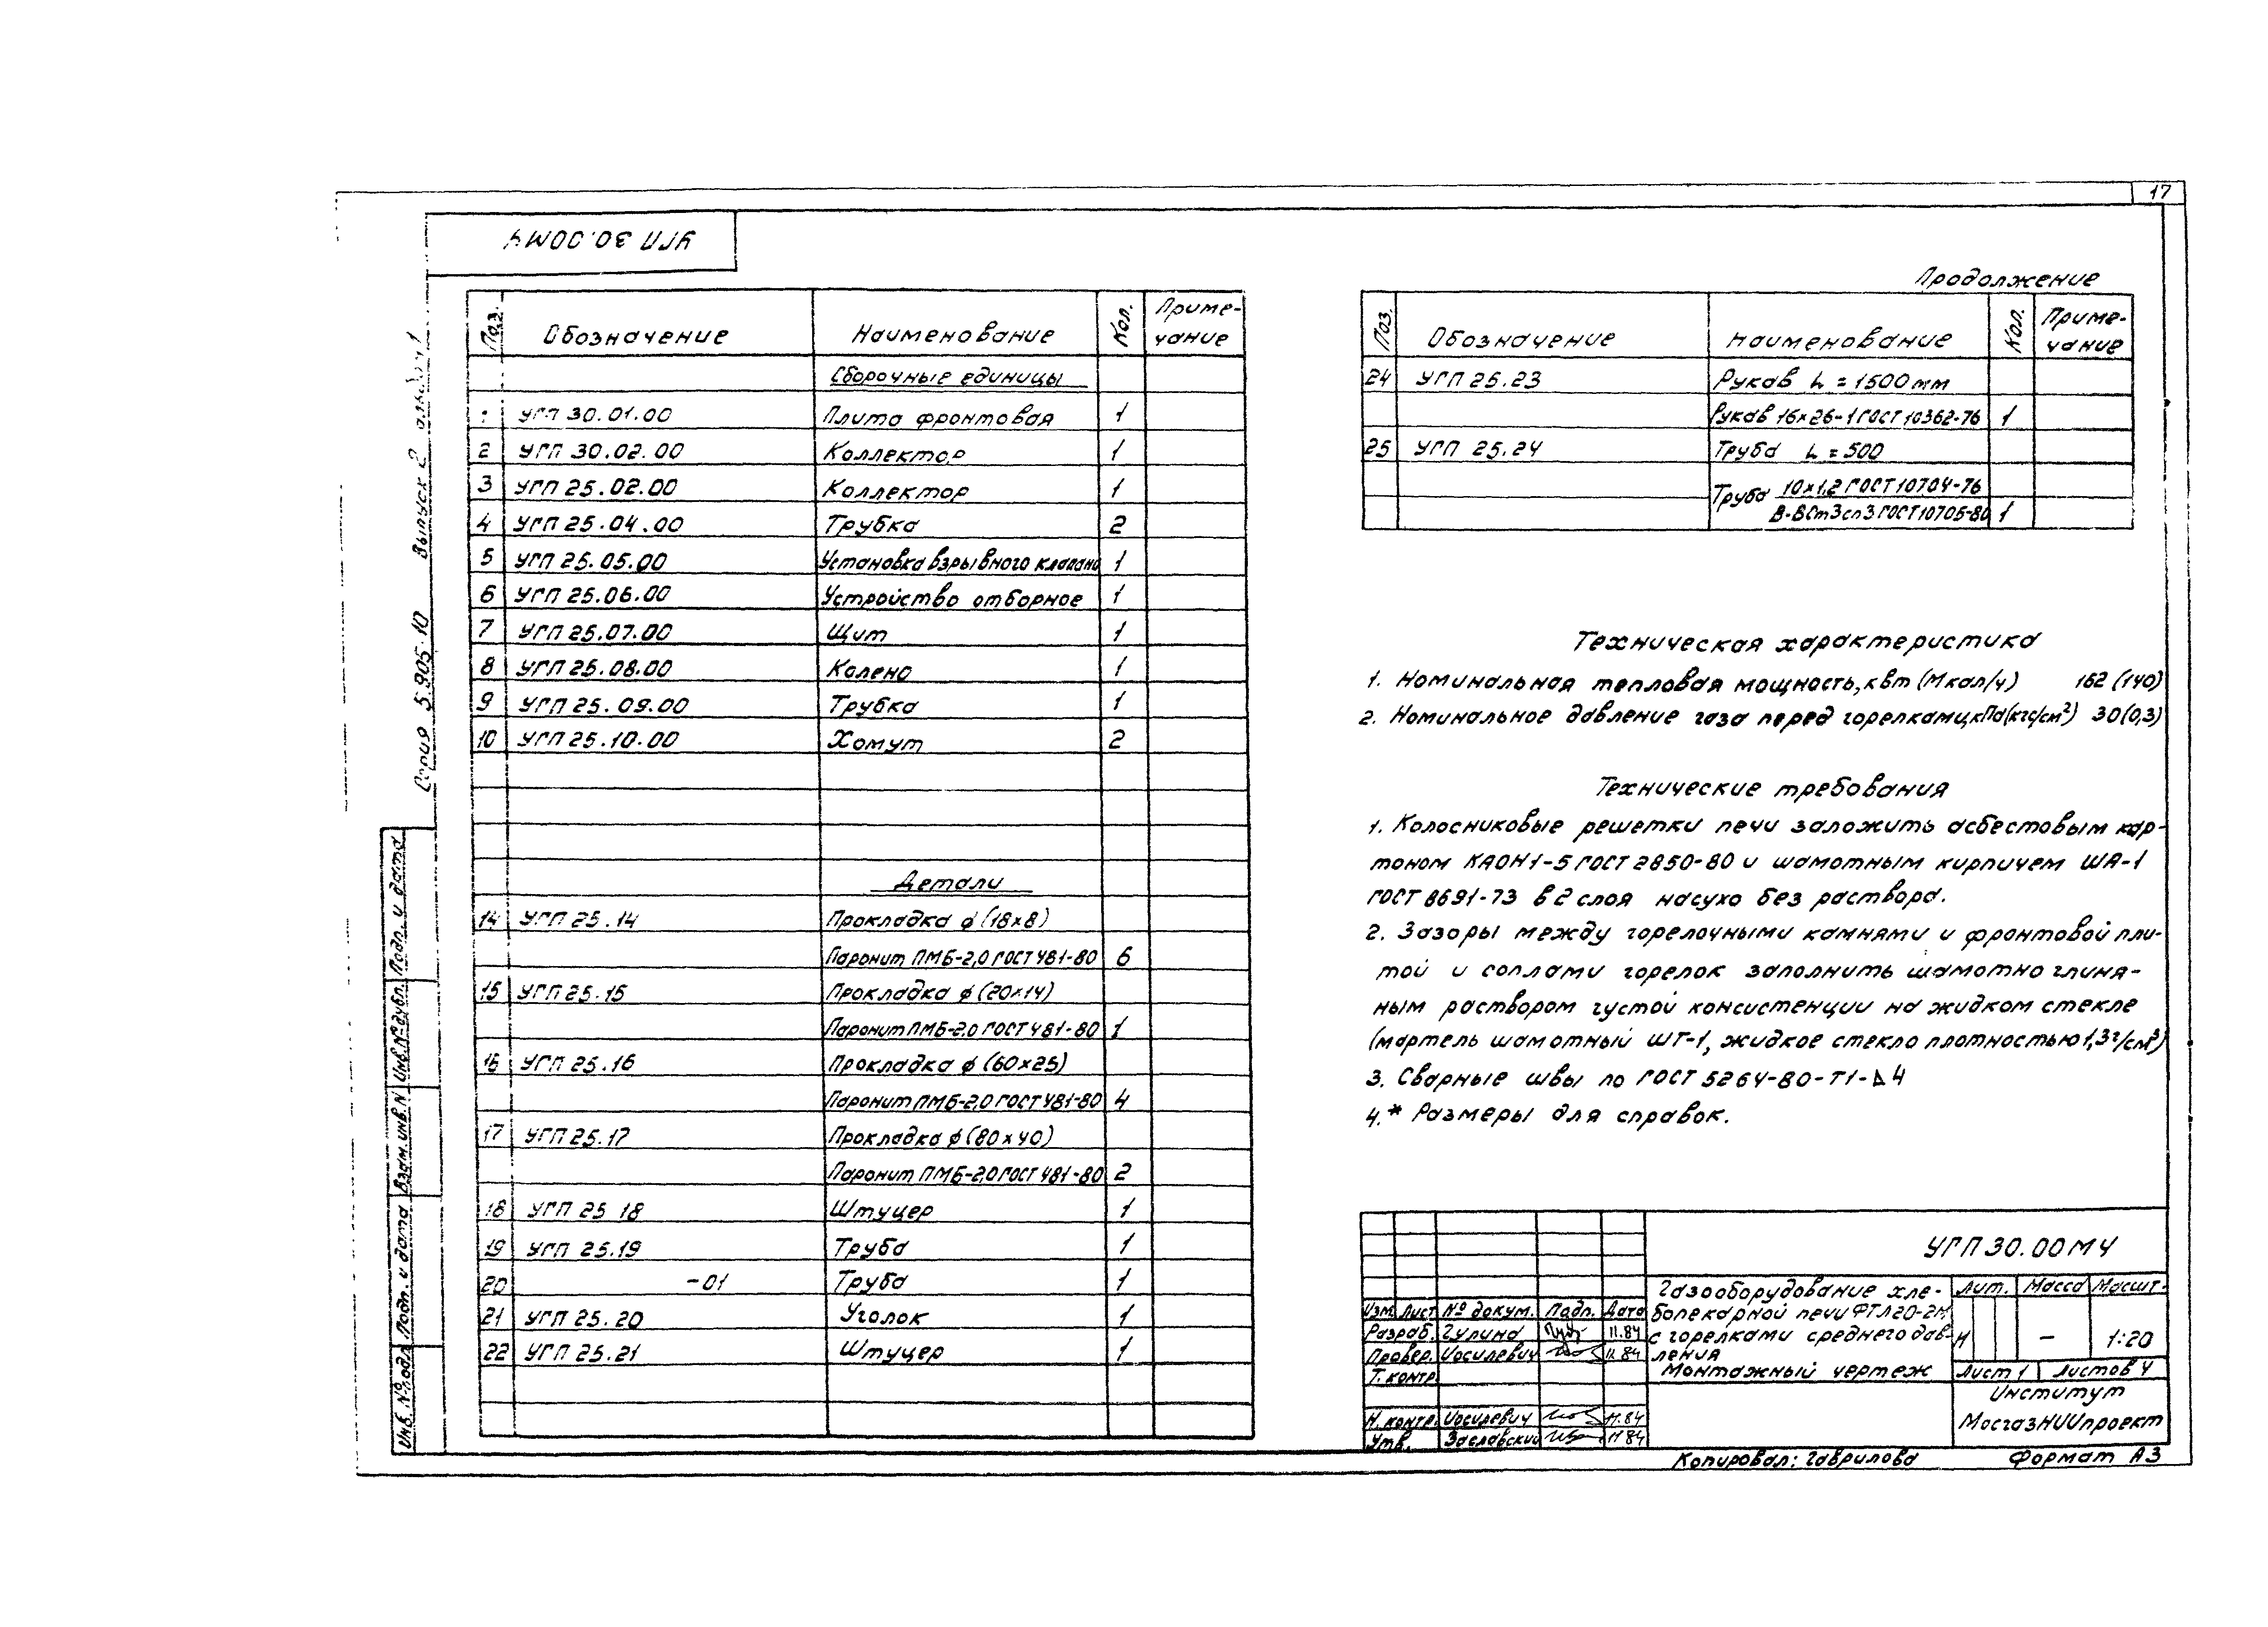 17
УГП 30.00МЧ
Серия 5.905-10 Выпуск 2 альбом 1
Поз. Обозначение Наименование Кол. Приме-
чание
Сборочные единицы
УГП 30.01.00 Плита фронтовая 1
2 УГП 30.02.00 Коллектор 1
3 УГП 25.02.00 Коллектор 1
4 УГП 25.04.00 Трубка 2
5 УГП 25.05.00 Установка взрывного клапана 1
6 УГП 25.06.00 Устройство отборное 1
7 УГП 25.07.00 Щит 1
8 УГП 25.08.00 Колено 1
9 УГП 25.09.00 Трубка 1
10 УГП 25.10.00 Хомут 2
Детали
14 УГП 25.14 Прокладка ф (18×8)
Паронит ПМБ-2,0 ГОСТ 481-80 6
15 УГП 25.15 Прокладка ф (20×14)
Паронит ПМБ-2,0 ГОСТ 481-80 1
16 УГП 25.16 Прокладка ф (60×25)
Паронит ПМБ-2,0 ГОСТ 481-80 4
17 УГП 25.17 Прокладка ф (80×40)
Паронит ПМБ-2,0 ГОСТ 481-80 2
18 УГП 25 18 Штуцер 1
19 УГП 25.19 Труба 1
20 -01 Труба 1
21 УГП 25.20 Уголок 1
22 УГП 25.21 Штуцер 1
Продолжение
Поз. Обозначение Наименование Кол. Приме-
чание
24 УГП 25.23 Рукав L = 1500 мм
Рукав 16×26-1 ГОСТ 10362-76 1
25 УГП 25.24 Труба L = 500
Труба 10×1,2 ГОСТ 10704-76
В-ВСт3сп3 ГОСТ 10705-80 1
Техническая характеристика
1. Номинальная тепловая мощность, квт (Мкал/ч) 162 (140)
2. Номинальное давление газа перед горелками, кПа (кгс/см²) 30 (0,3)
Технические требования
1. Колосниковые решетки печи заложить асбестовым кар-
тоном КАОН1-5 ГОСТ 2850-80 и шамотным кирпичем ША-1
ГОСТ 8691-73 в 2 слоя насухо без раствора.
2. Зазоры между горелочными камнями и фронтовой пли-
той и соплами горелок заполнить шамотно глиня-
ным раствором густой консистенции на жидком стекле
(мартель шамотный ШТ-1, жидкое стекло плотностью 1,3 г/см³)
3. Сварные швы по ГОСТ 5264-80-Т1-⊿4
4.* Размеры для справок.
УГП 30.00 МЧ
Газооборудование хле-
бопекарной печи ФТЛ20-2М
с горелками среднего дав-
ления
Монтажный чертеж
Лит. Масса Масшт.
И — 1:20
Лист 1 Листов 4
Институт
МосгазНИИпроект
Изм. Лист № докум. Подп. Дата
Разраб. Гулина 11.84
Провер. Иосилевич 11.84
Т. контр.
Н. контр. Иосилевич 11.84
Утв. Заславский 11 84
Копировал: Гаврилова Формат А3
Подп. и дата
Инв. № дубл.
Взам. инв. №
Подп. и дата
Инв. № подл.